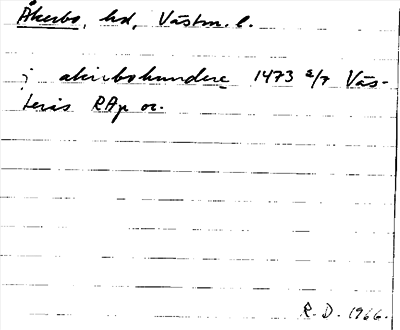 Åkerbo, hd, Västm. l.
j akirbohundere 1473 2/7 Väs-
terås RAp or.
R. D. 1966.